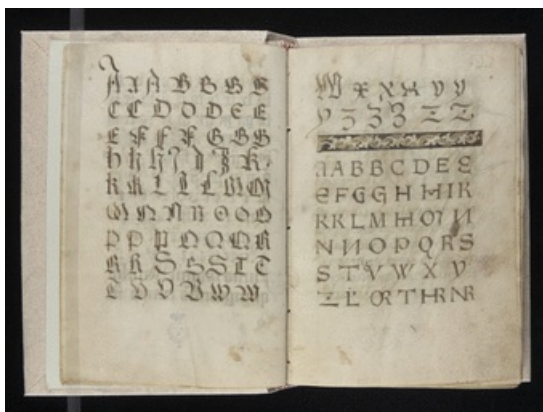 A A A B B B B
C C C D O D E E
E F F F G G G G
H H H I J K K
K K L L L M M
M N N N O O O
P P P Q Q Q R
R R S S S T T
T V V V W W
W X X X Y Y
Y Z Z Z Z Z
A A B B C D E E
E F G G H H I K
K K L M M M N
N N O P Q R S
S T V W X Y
Z L OR T HR NR